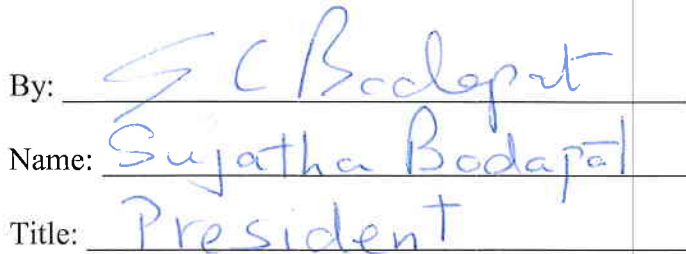 By: S C Bodapat
Name: Sujatha Bodapati
Title: President